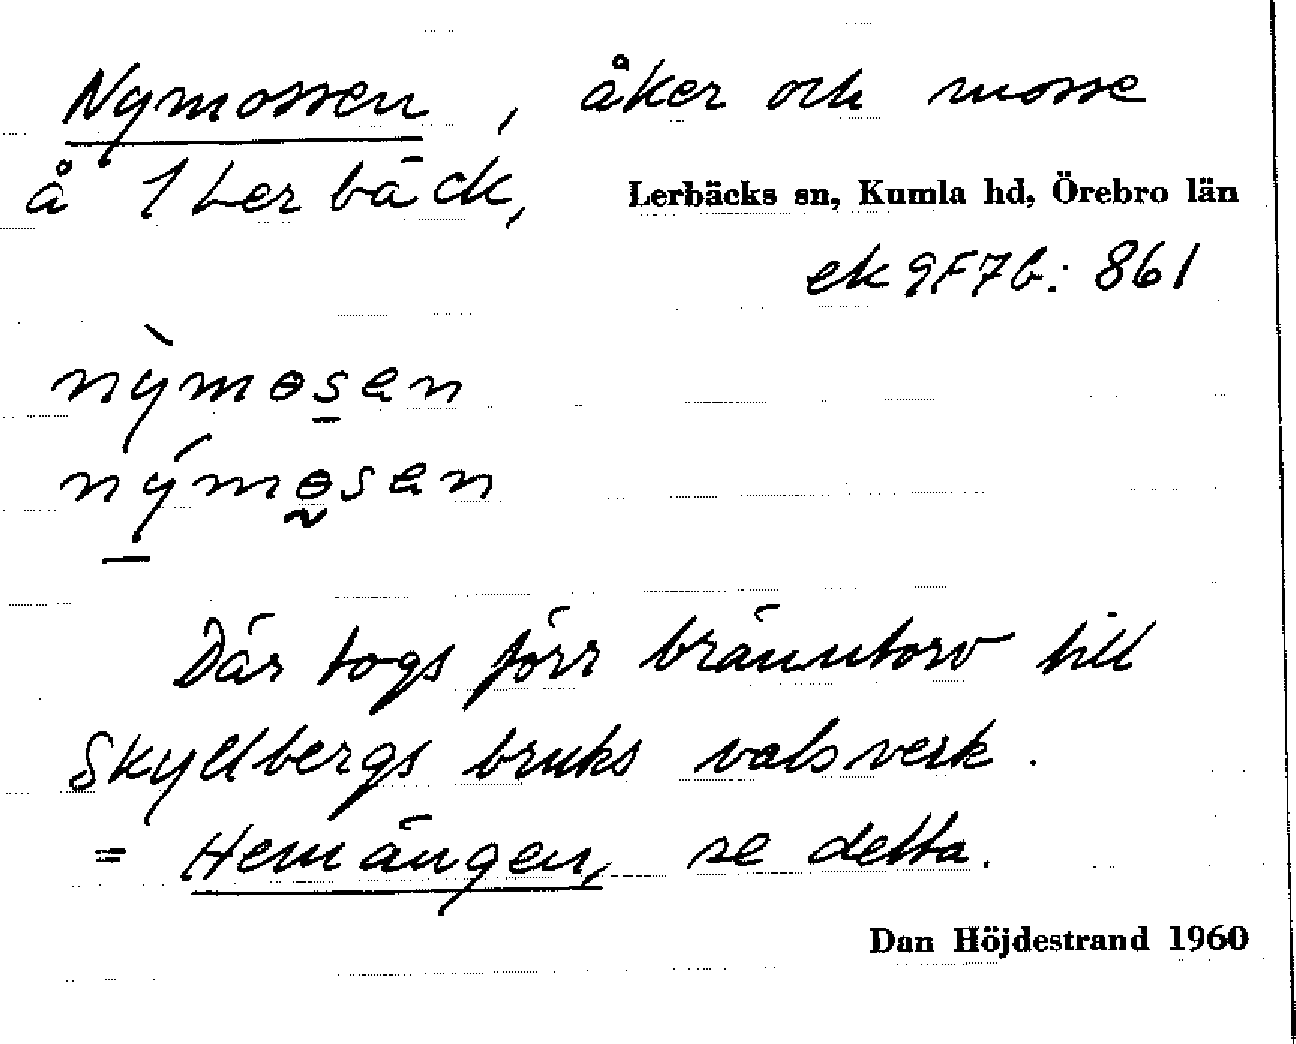 Nymossen, åker och mosse
å 1 Lerbäck, Lerbäcks sn, Kumla hd, Örebro län
ek 9F7b: 861
nỳmɵs̲ən
ný̲mɵ̰sən
Där togs förr bränntorv till
Skyllbergs bruks valsverk.
= Hemängen, se detta.
Dan Höjdestrand 1960